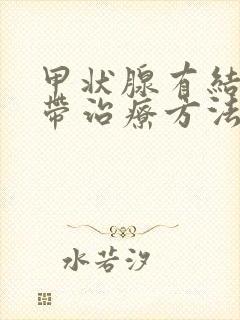 甲状腺有結
帶治療方法
水若汐